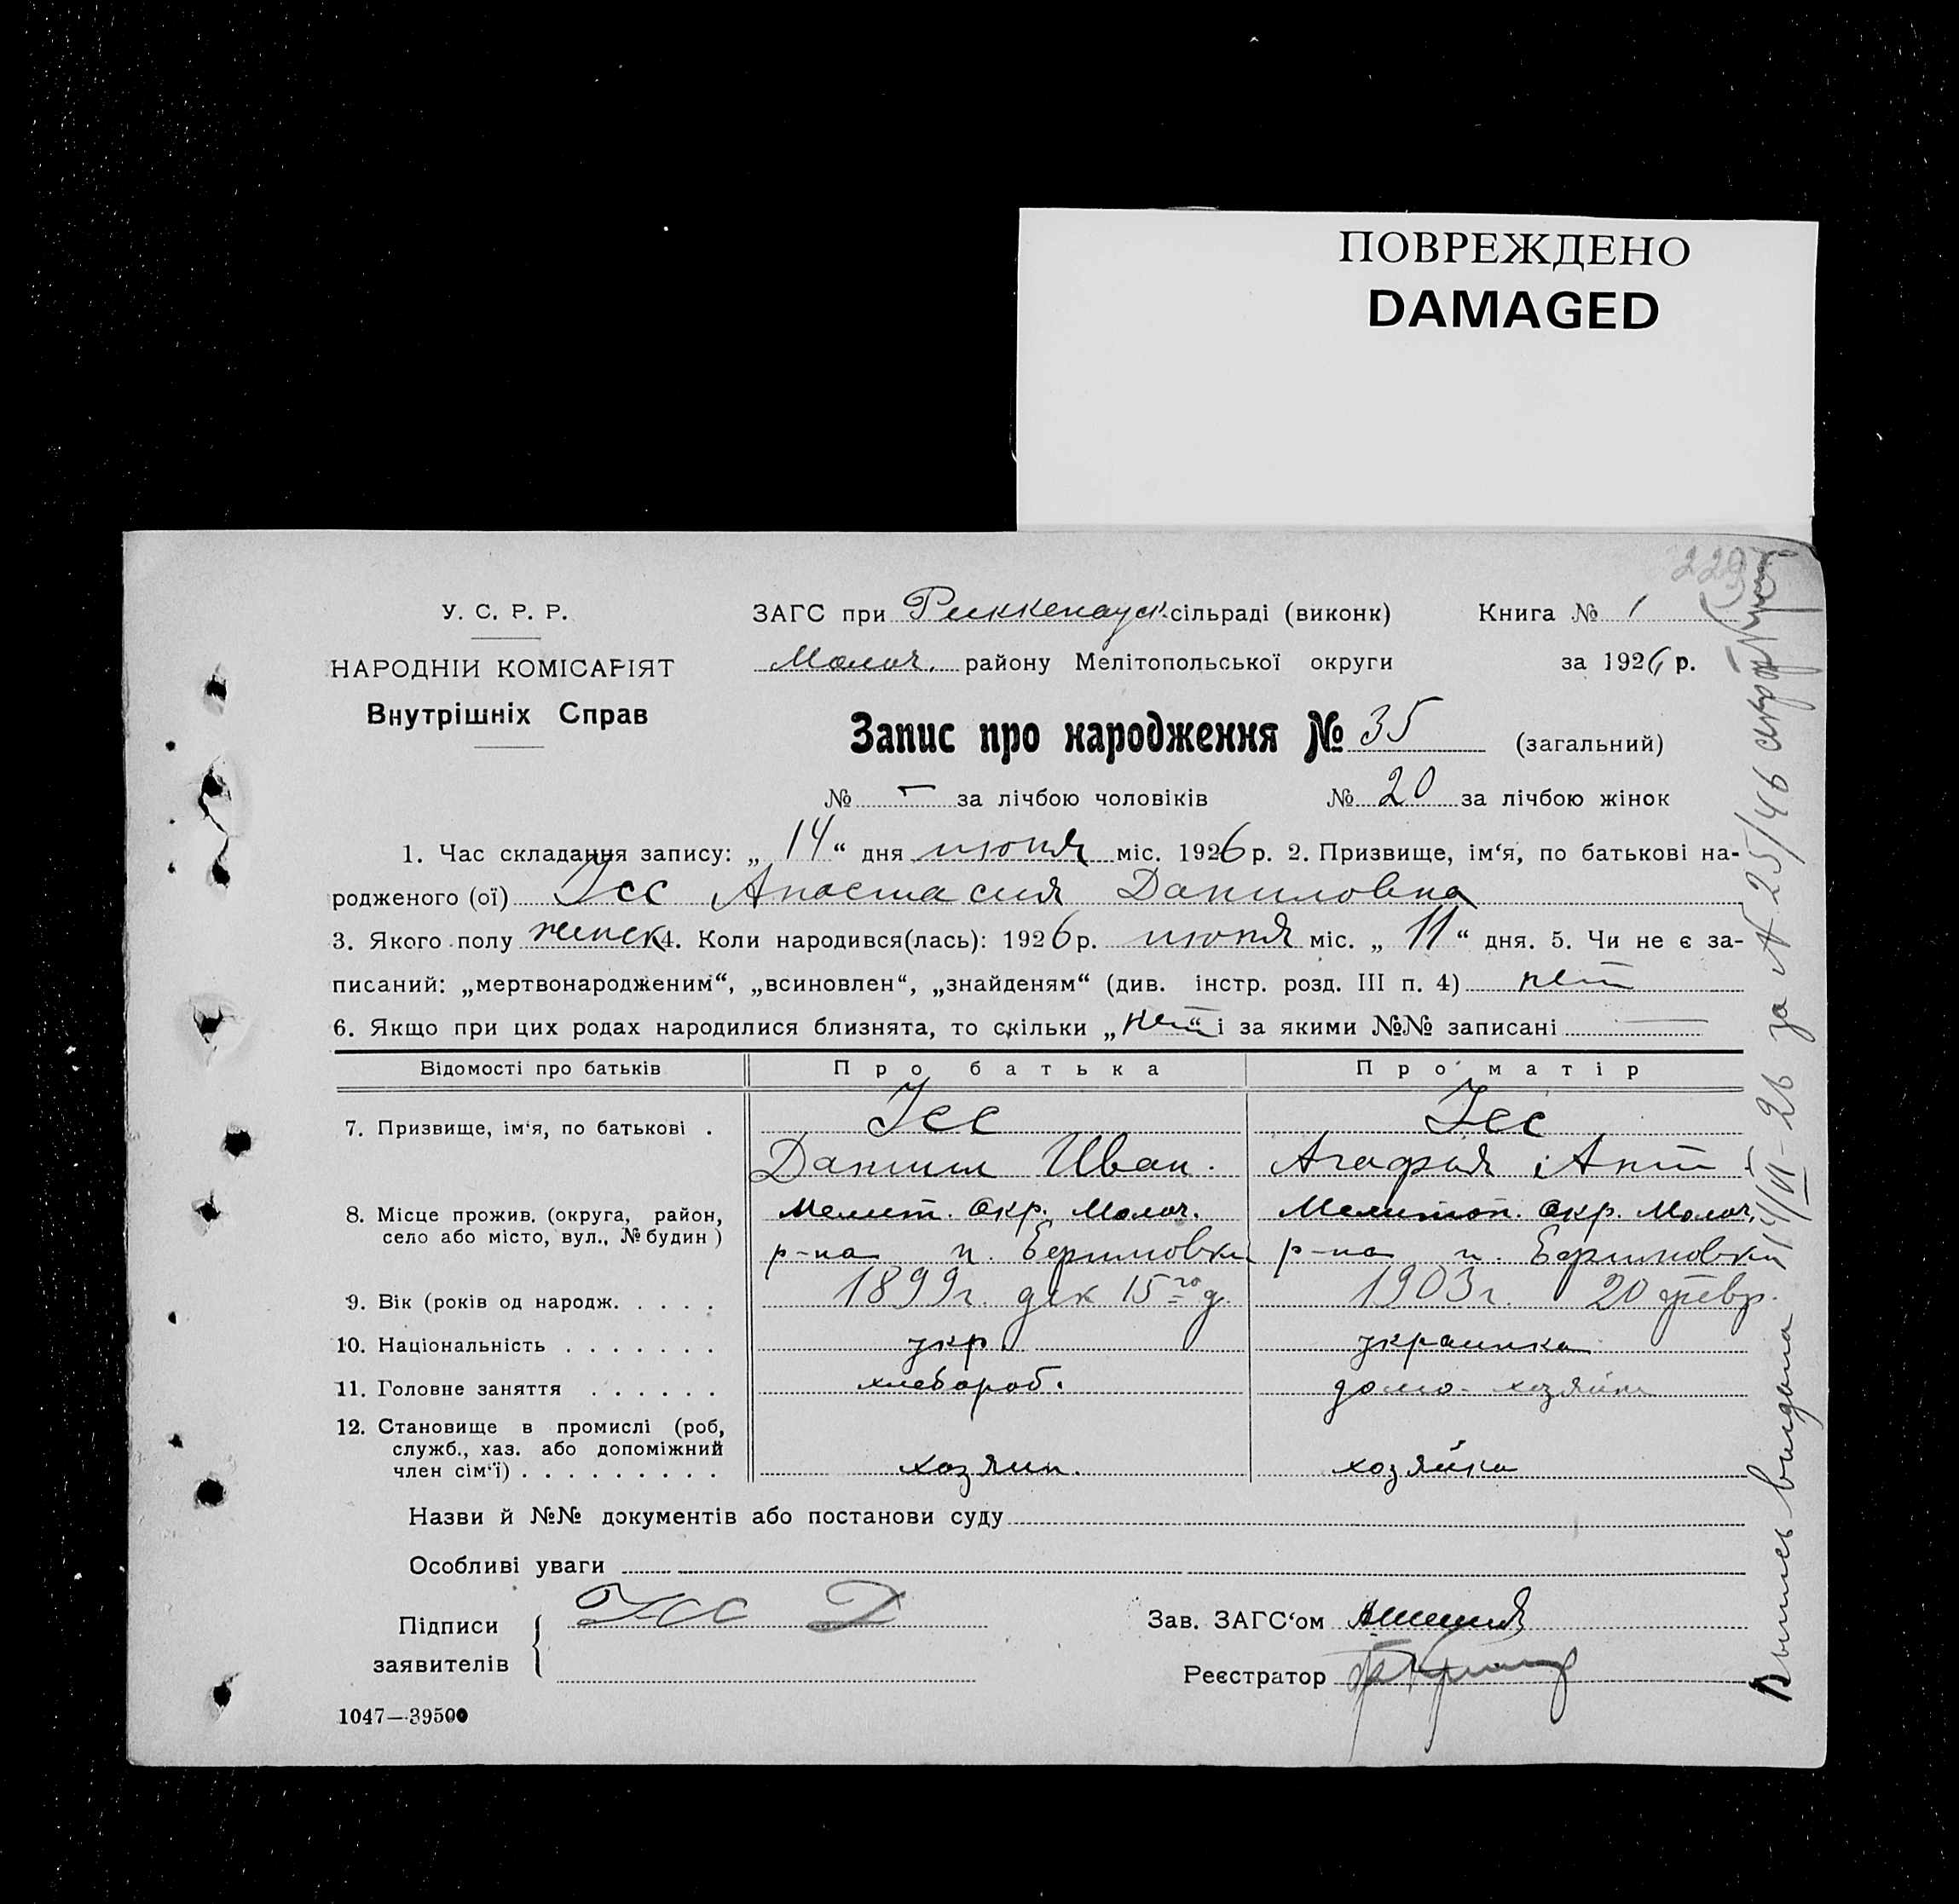 ПОВРЕЖДЕНО
DAMAGED
229
У. С. Р. Р.
НАРОДНІЙ КОМІСАРІЯТ
Внутрішніх Справ
ЗАГС при Риккенауск. сільраді (виконк) Книга № 1
Молоч. району Мелітопольської округи за 1926 р.
Запис про народження № 35 (загальний)
№ – за лічбою чоловіків № 20 за лічбою жінок
1. Час складання запису: „ 14 “ дня июня міс. 1926 р. 2. Призвище, ім‘я, по батькові на-
родженого (ої) Усс Анастасия Даниловна
3. Якого полу женск 4. Коли народився(лась): 1926 р. июня міс. „ 11 “ дня. 5. Чи не є за-
писаний: „мертвонародженим“, „всиновлен“, „знайденям“ (див. інстр. розд. III п. 4) нет
6. Якщо при цих родах народилися близнята, то скільки „ нет “ і за якими №№ записані —
Відомості про батьків Про батька Про матір
7. Призвище, ім‘я, по батькові . Усс Усс
Даниил Иван. Агафия Ант
8. Місце прожив. (округа, район, Мелит. Окр. Молоч. Мелитоп. Окр. Молоч.
село або місто, вул., № будин ) р-на п. Ефимовки р-на п. Ефимовки
9. Вік (років од народж. . . . . 1899 г. дек 15го д. 1903 г. 20 февр.
10. Національність . . . . . . . укр украинка
11. Головне заняття . . . . . . хлебороб. домо-хозяйка
12. Становище в промислі (роб,
служб., хаз. або допоміжний
член сім‘ї) . . . . . . . . . хозяин. хозяйка
Назви й №№ документів або постанови суду
Особливі уваги
Підписи заявителів Усс Д
Зав. ЗАГС‘ом
Реєстратор
1047—39500
Выпись выдана 14/VI-26 за № 25/46